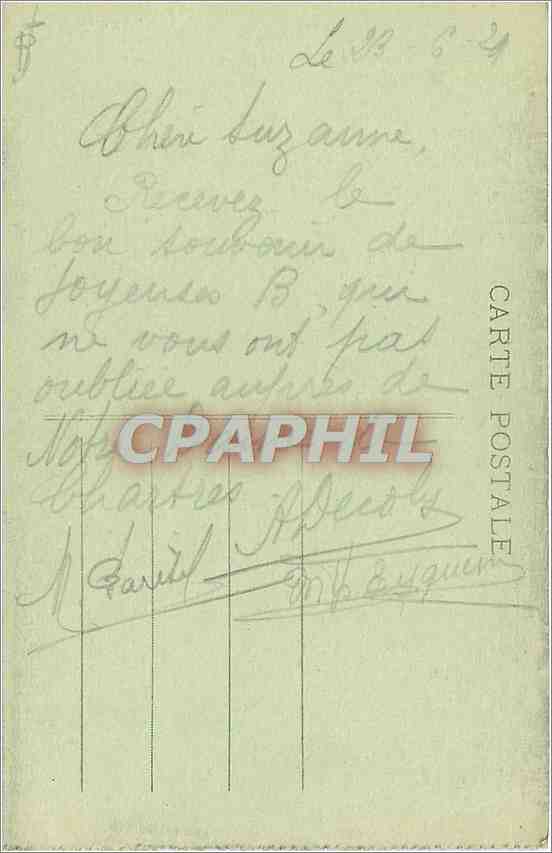 Le 23-6-21
Chère Suzanne,
Recevez le
bon souvenir de
Joyeuses B, qui
ne vous ont pas
oubliée auprès de
Chartres.
M
CPAPHIL
CARTE POSTALE